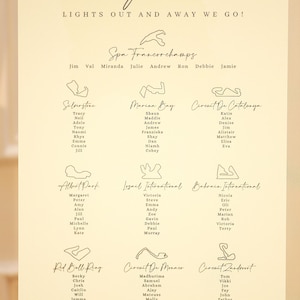 LIGHTS OUT AND AWAY WE GO!
Spa Francorchamps
Jim Val Miranda Julie Andrew Ron Debbie Jamie
Silverstone
Tracy
Neil
Adele
Tony
Naomi
Rhys
Emma
Connie
Jill
Marina Bay
Shaun
Maddie
Andrew
James
Dan
Niamh
Coby
Circuit De Catalunya
Katie
Alex
Denise
Jim
Alistair
Matthew
Elise
Eve
Albert Park
Margaret
Peter
Amy
Alan
Jill
Paul
Michelle
Lynn
Kate
Losail International
Victoria
Steve
Emma
Andy
Eve
Gavin
Debbie
Paul
Murray
Bahrain International
Nicola
Eric
Jill
Peter
Marion
Rob
Victoria
Terry
Red Bull Ring
Becky
Chris
Josh
Caitlin
Will
Circuit De Monaco
Madhurima
Samuel
Abraham
Amy
Marcus
Circuit Zandvoort
Tom
Vikki
Jon
Fay
John